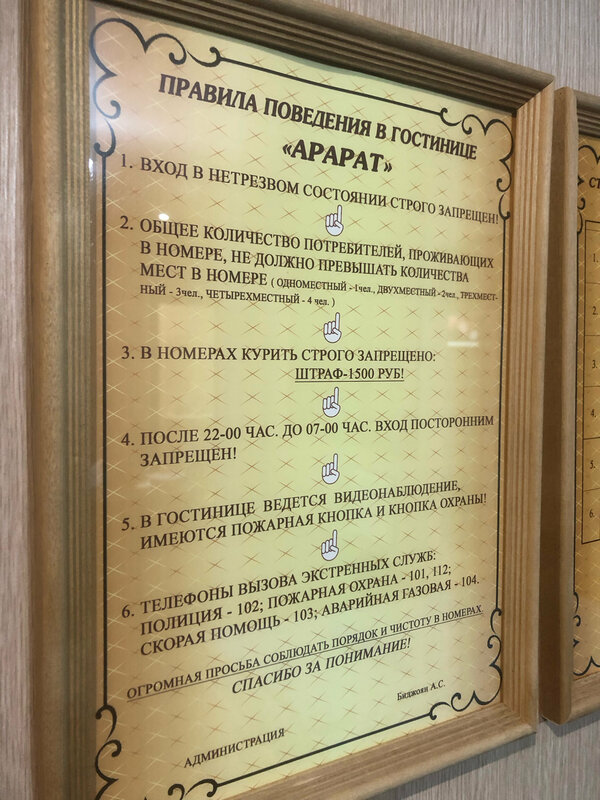 ПРАВИЛА ПОВЕДЕНИЯ В ГОСТИНИЦЕ
«АРАРАТ»
1. ВХОД В НЕТРЕЗВОМ СОСТОЯНИИ СТРОГО ЗАПРЕЩЕН!
2. ОБЩЕЕ КОЛИЧЕСТВО ПОТРЕБИТЕЛЕЙ, ПРОЖИВАЮЩИХ
В НОМЕРЕ, НЕ ДОЛЖНО ПРЕВЫШАТЬ КОЛИЧЕСТВА
МЕСТ В НОМЕРЕ ( ОДНОМЕСТНЫЙ -1чел., ДВУХМЕСТНЫЙ -2чел., ТРЕХМЕСТ-
НЫЙ - 3чел., ЧЕТЫРЕХМЕСТНЫЙ - 4 чел. )
3. В НОМЕРАХ КУРИТЬ СТРОГО ЗАПРЕЩЕНО:
ШТРАФ-1500 РУБ!
4. ПОСЛЕ 22-00 ЧАС. ДО 07-00 ЧАС. ВХОД ПОСТОРОННИМ
ЗАПРЕЩЕН!
5. В ГОСТИНИЦЕ ВЕДЕТСЯ ВИДЕОНАБЛЮДЕНИЕ,
ИМЕЮТСЯ ПОЖАРНАЯ КНОПКА И КНОПКА ОХРАНЫ!
6. ТЕЛЕФОНЫ ВЫЗОВА ЭКСТРЕННЫХ СЛУЖБ:
ПОЛИЦИЯ - 102; ПОЖАРНАЯ ОХРАНА - 101, 112;
СКОРАЯ ПОМОЩЬ - 103; АВАРИЙНАЯ ГАЗОВАЯ - 104.
ОГРОМНАЯ ПРОСЬБА СОБЛЮДАТЬ ПОРЯДОК И ЧИСТОТУ В НОМЕРАХ.
СПАСИБО ЗА ПОНИМАНИЕ!
Биджоян А.С.
АДМИНИСТРАЦИЯ
1.
2.
3.
4.
5.
6.